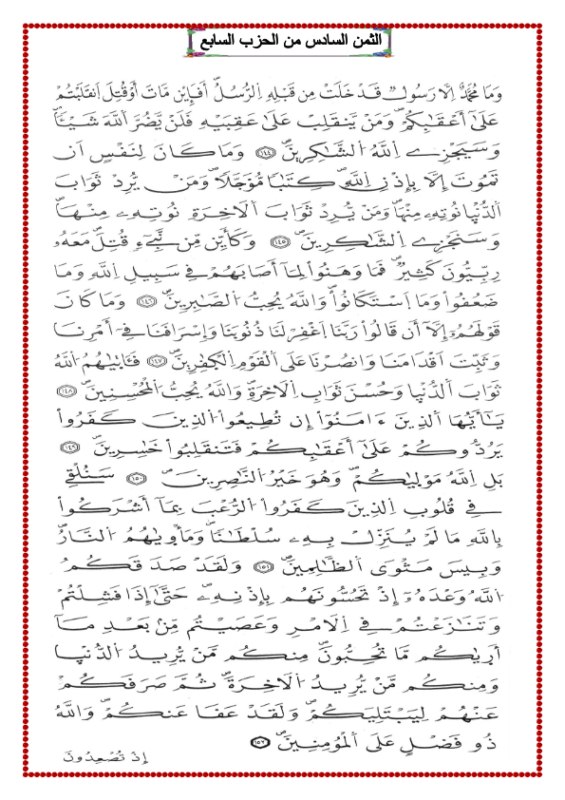 الثمن السادس من الحزب السابع
وَمَا مُحَمَّدٌ اِلَّا رَسُولٌ قَدْ خَلَتْ مِن قَبْلِهِ اِلرُّسُلُ أَفَإِيْن مَّاتَ أَوْ قُتِلَ اَنقَلَبْتُمْ
عَلَىٰٓ أَعْقَٰبِكُمْ وَمَنْ يَّنقَلِبْ عَلَىٰ عَقِبَيْهِ فَلَنْ يَّضُرَّ اَللَّهَ شَيْـًٔا
وَسَيَجْزِے اِللَّهُ اُلشَّٰكِرِينَ ١٤٤ وَمَا كَانَ لِنَفْسٍ اَن
تَمُوتَ إِلَّا بِإِذْنِ اِللَّهِ كِتَٰبًا مُّؤَجَّلًا وَمَنْ يُّرِدْ ثَوَابَ
اَلدُّنْيَا نُوتِهِۦ مِنْهَا وَمَنْ يُّرِدْ ثَوَابَ اَلَاخِرَةِ نُوتِهِۦ مِنْهَا
وَسَنَجْزِے اِلشَّٰكِرِينَ ١٤٥ وَكَأَيِّن مِّن نَّبِےٓءٍ قُتِلَ مَعَهُۥ
رِبِّيُّونَ كَثِيرٌ فَمَا وَهَنُواْ لِمَآ أَصَابَهُمْ فِے سَبِيلِ اِللَّهِ وَمَا
ضَعُفُواْ وَمَا اَسْتَكَانُواْ وَاللَّهُ يُحِبُّ اُلصَّٰبِرِينَ ١٤٦ وَمَا كَانَ
قَوْلَهُمُۥٓ إِلَّآ أَن قَالُواْ رَبَّنَا اَغْفِرْ لَنَا ذُنُوبَنَا وَإِسْرَافَنَا فِےٓ أَمْرِنَا
وَثَبِّتَ اَقْدَامَنَا وَانصُرْنَا عَلَى اَلْقَوْمِ اِلْكٰ۪فِرِينَ ١٤٧ فَـَٔاتَيٰهُمُ اُللَّهُ
ثَوَابَ اَلدُّنْيَا وَحُسْنَ ثَوَابِ اِلَاخِرَةِ وَاللَّهُ يُحِبُّ اُلْمُحْسِنِينَ ١٤٨
يَٰٓأَيُّهَا اَلذِينَ ءَامَنُوٓاْ إِن تُطِيعُواْ اُلذِينَ كَفَرُواْ
يَرُدُّوكُمْ عَلَىٰٓ أَعْقَٰبِكُمْ فَتَنقَلِبُواْ خَٰسِرِينَ ١٤٩
بَلِ اِللَّهُ مَوْلَيٰكُمْ وَهُوَ خَيْرُ اُلنَّٰصِرِينَ ١٥٠ سَنُلْقِے
فِے قُلُوبِ اِلذِينَ كَفَرُواْ اُلرُّعْبَ بِمَآ أَشْرَكُواْ
بِاللَّهِ مَا لَمْ يُنَزِّلْ بِهِۦ سُلْطَٰنًا وَمَأْوَيٰهُمُ اُلنَّارُ
وَبِيسَ مَثْوَى اَلظَّٰلِمِينَ ١٥١ وَلَقَدْ صَدَقَكُمُ
اُللَّهُ وَعْدَهُۥٓ إِذْ تَحُسُّونَهُم بِإِذْنِهِۦ حَتَّىٰٓ إِذَا فَشِلْتُمْ
وَتَنَٰزَعْتُمْ فِے اِلَامْرِ وَعَصَيْتُم مِّنۢ بَعْدِ مَآ
أَرٰ۪يٰكُم مَّا تُحِبُّونَ مِنكُم مَّنْ يُّرِيدُ اُلدُّنْيَا
وَمِنكُم مَّنْ يُّرِيدُ اُلَاخِرَةَ ثُمَّ صَرَفَكُمْ
عَنْهُمْ لِيَبْتَلِيَكُمْ وَلَقَدْ عَفَا عَنكُمْ وَاللَّهُ
ذُو فَضْلٍ عَلَى اَلْمُؤْمِنِينَ ١٥٢
إِذْ تُصْعِدُونَ